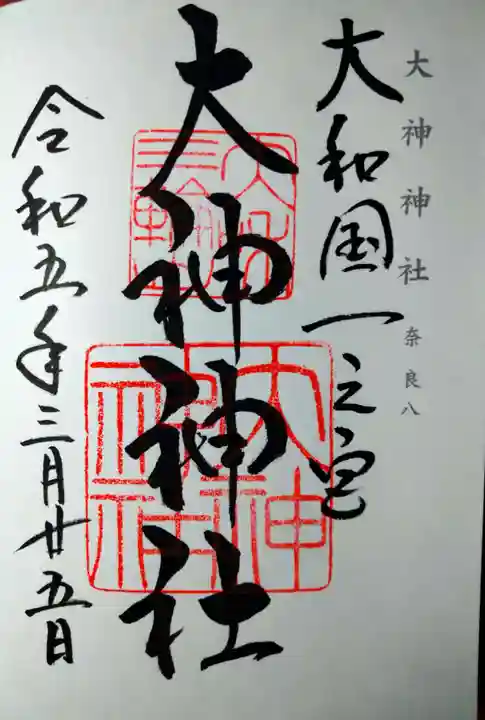 大神神社 奈良八
大和国一之宮
大神神社
令和五年三月廿五日
大神神社